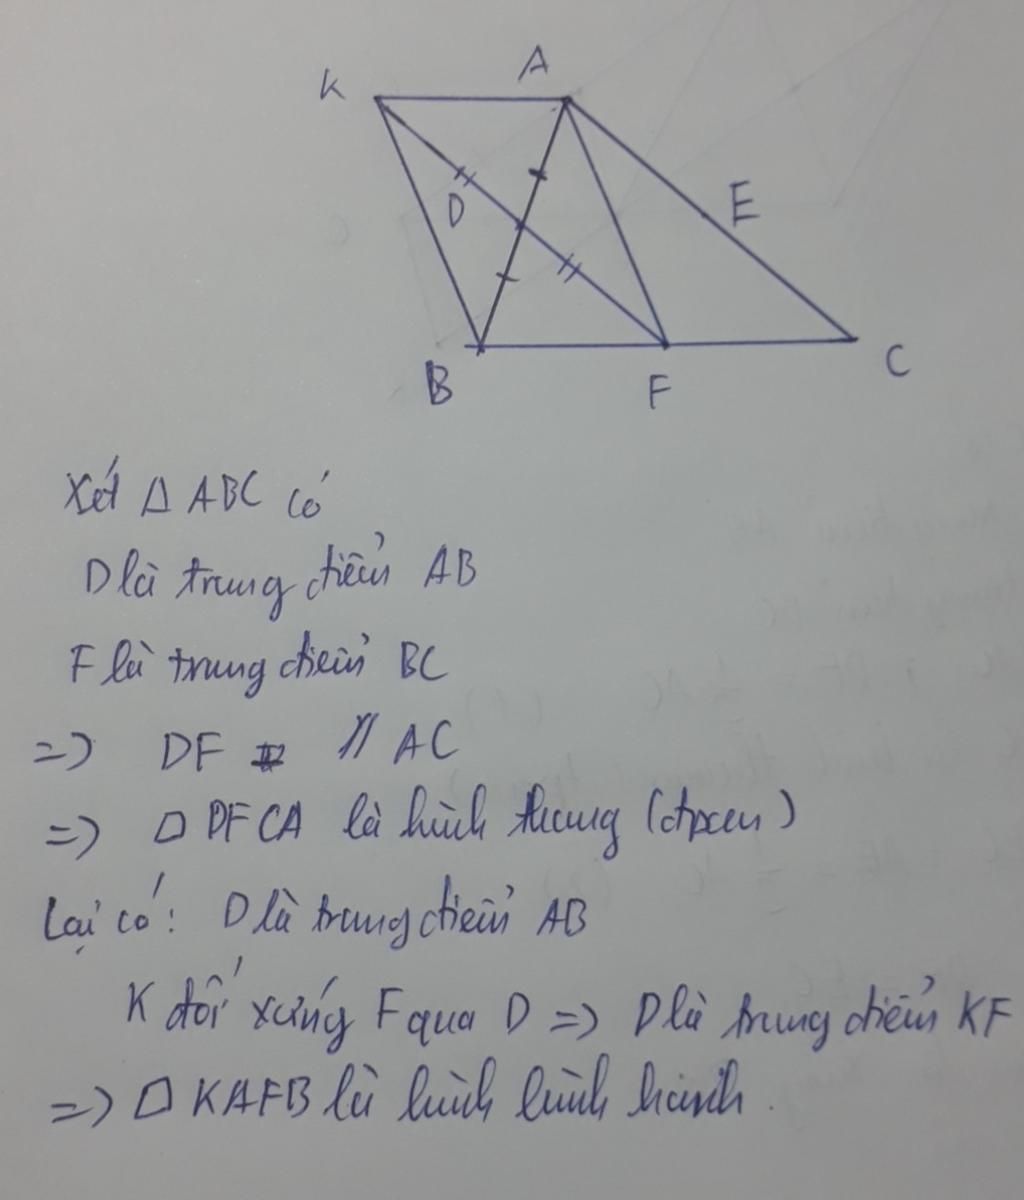 K A
D E
B F C
Xét Δ ABC có
D là trung điểm AB
F là trung điểm BC
=> DF // AC
=> □ DFCA là hình thang (đpcm)
Lại có: D là trung điểm AB
K đối xứng F qua D => D là trung điểm KF
=> □ KAFB là hình bình hành.